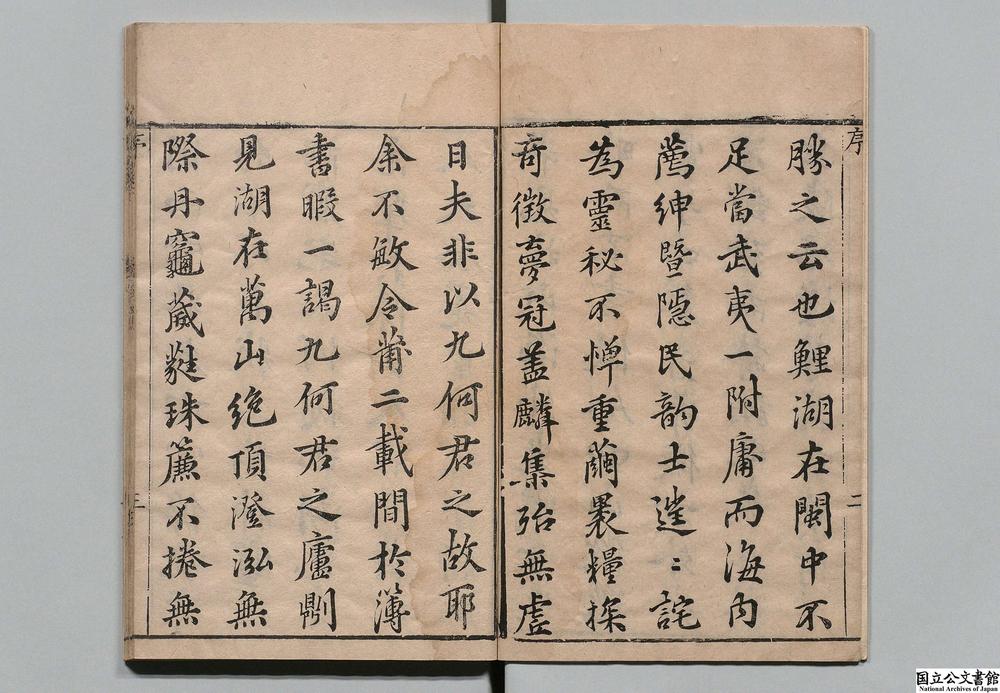 序
二
勝之云也鯉湖在閩中不
足當武夷一附庸而海内
薦紳曁隱民韵士遑〻詫
為靈秘不憚重繭裹糧探
奇徴夢冠盖麟集殆無虚
日夫非以九何君之故耶
余不敏令莆二載間於簿
書暇一謁九何君之廬則
見湖在萬山絶頂澄泓無
際丹竈葳蕤珠簾不捲無
国立公文書館
National Archives of Japan